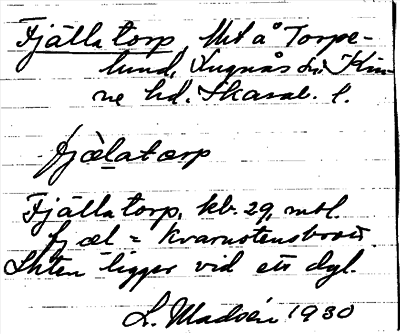 Fjälla torp, Utt å Torpe-
lund, Lugnås sn, Kin-
ne hd. Skarab. l.
fjælatærp
Fjälla torp, kb. 29, mtl.
fjæl = kvarnstensbrott
Stten ligger vid ett dyl.
L. Madsén 1930